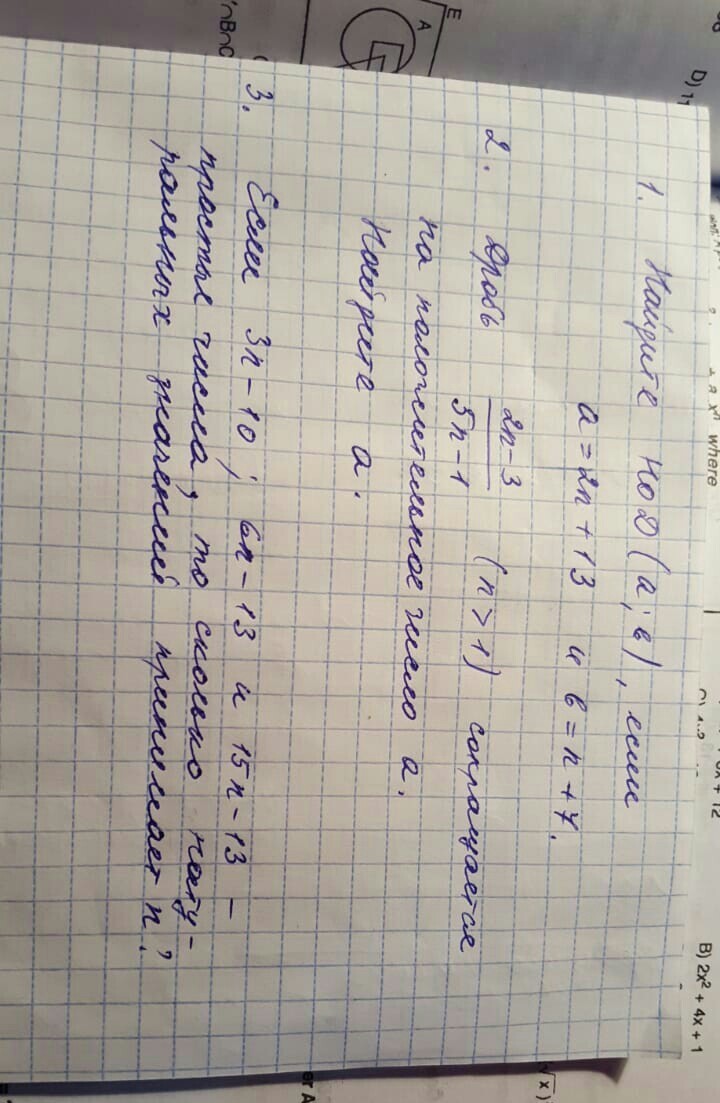 1. Найдите НОД (а; в), если
а = 2n + 13 и в = n + 7.
2. Дробь 2n-3/5n-1 (n > 1) сокращается
на положительное число а.
Найдите а.
3. Если 3n-10; 6n-13 и 15n-13 -
простые числа, то сколько нату-
ральных значений принимает n?
E
A
where
B) 2x² + 4x + 1
D)